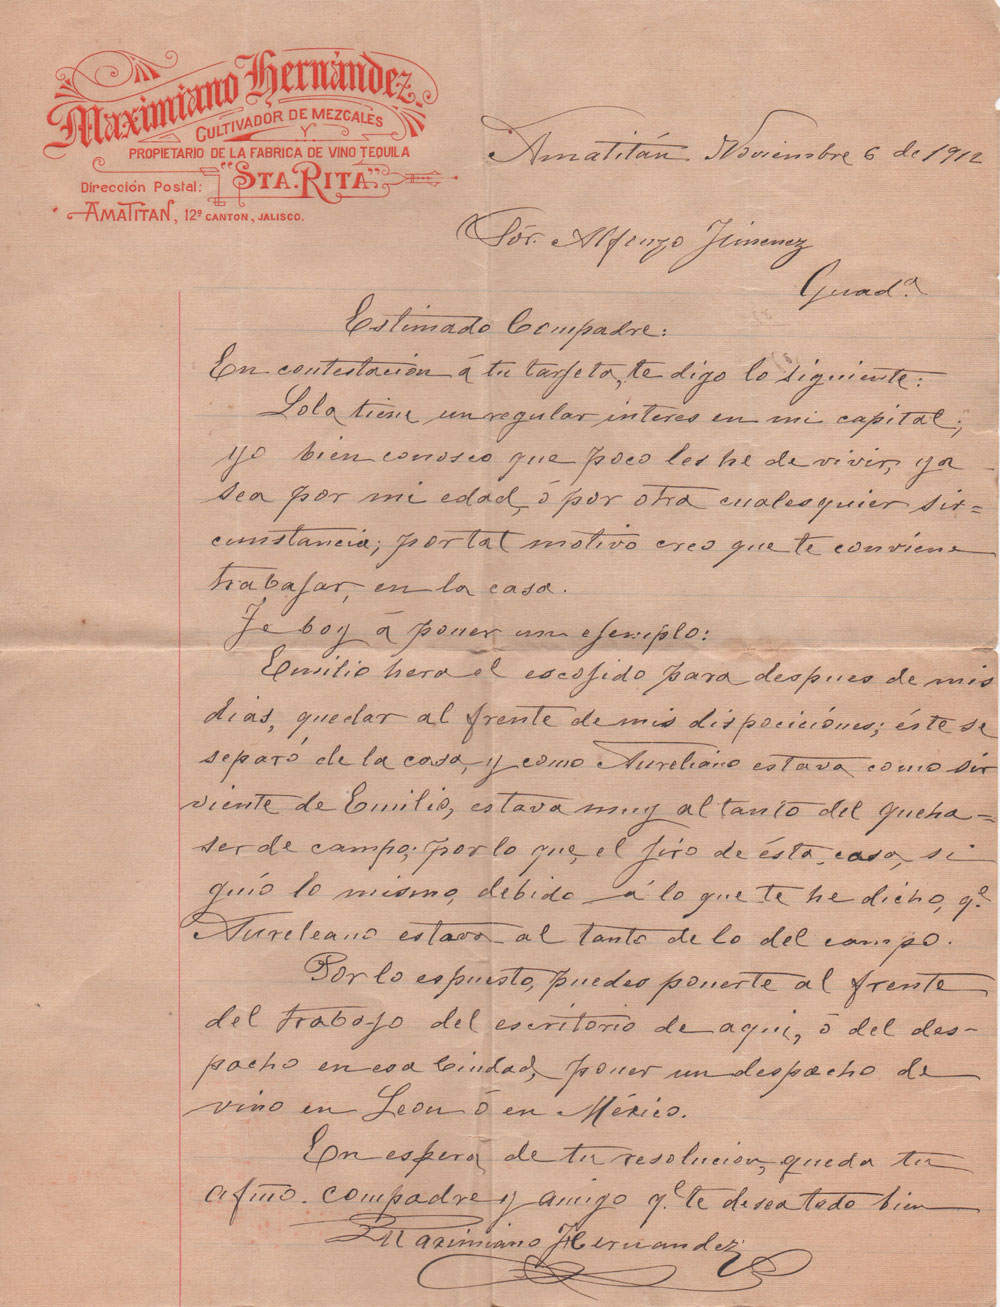 Maximiano Hernández.
CULTIVADOR DE MEZCALES
Y
PROPIETARIO DE LA FABRICA DE VINO TEQUILA
"STA. RITA"
Dirección Postal:
AMATITAN, 12º CANTON, JALISCO.
Amatitán Noviembre 6 de 1912
Sór. Alfonzo Jimenez
Guadª.
Estimado Compadre:
En contestación á tu tarjeta, te digo lo siguiente:
Lola tiene un regular interes en mi capital;
yo bien conosco que poco les he de vivir, ya
sea por mi edad, ó por otra cualesquier sir=
cunstancia; por tal motivo creo que te conviene
trabajar, en la casa.
Te boy á poner un ejemplo:
Emilio hera el escojido para despues de mis
dias, quedar al frente de mis disposiciónes; éste se
separó de la casa, y como Aureliano estava como sir
viente de Emilio, estava muy al tanto del queha=
ser de campo; por lo que, el jiro de ésta casa, si
guío lo mismo, debido á lo que te he dicho, q.e
Aureleano estava al tanto de lo del campo.
Por lo espuesto, puedes ponerte al frente
del trabajo del escritorio de aqui, ó del des-
pacho en esa Ciudad, poner un despacho de
vino en Leon ó en México.
En espera de tu resolucion, queda tu
afmo. compadre y amigo q.e te desea todo bien
Maximiano Hernandez